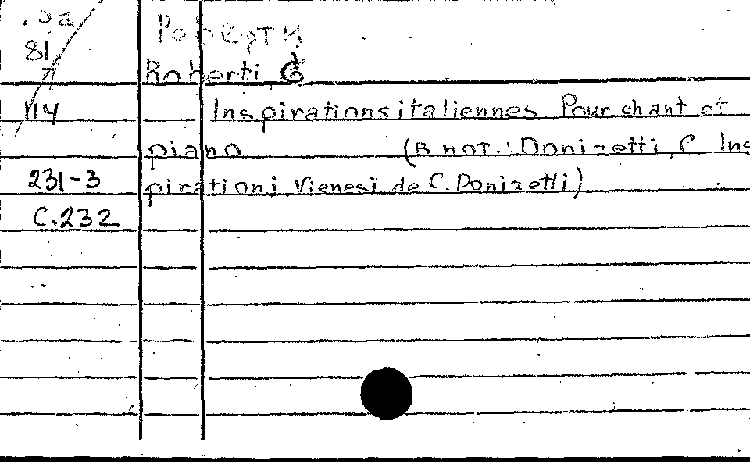 81
Роберти
Roberti, G
114
Inspirations italiennes Pour chant et
piano (в нот.: Donizetti, C Ins
231-3
pirationi Vienesi de C. Donizetti)
C.232